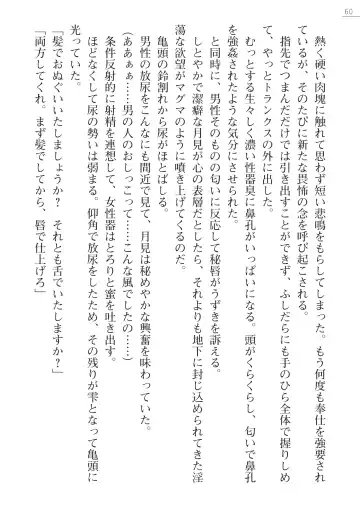 60
熱く硬い肉塊に触れて思わず短い悲鳴をもらしてしまった。もう何度も奉仕を強要され
ているが、そのたびに新たな畏怖の念を呼び起こされる。
指先でつまんだだけでは引き出すことができず、ふしだらにも手のひら全体で握りしめ
て、やっとトランクスの外に出した。
むっとする生々しく濃い性器臭に鼻孔がいっぱいになる。頭がくらくらし、匂いで鼻孔
を強姦されたような気分にさせられた。
と同時に、男性そのものの匂いに反応して秘唇がうずきを訴える。
しとやかで潔癖な月見が心の表層だとしたら、それよりも地下に封じ込められてきた淫
蕩な欲望がマグマのように噴き上げてくるのだ。
亀頭の鈴割れから尿がほとばしる。
男性の放尿をこんなにも間近で見て、月見は秘めやかな興奮を味わっていた。
（ああぁぁ……男の人のおしっこって……こんな風でしたの……）
条件反射的に射精を連想し、女性器はとろりと蜜を吐き出す。
ほどなくして尿の勢いは弱まる。仰角で放尿をしたため、その残りが雫となって亀頭に
光っていた。
「髪でおぬぐいいたしましょうか？　それとも舌でいたしますか？」
「両方してくれ。まず髪でしてから、唇で仕上げろ」